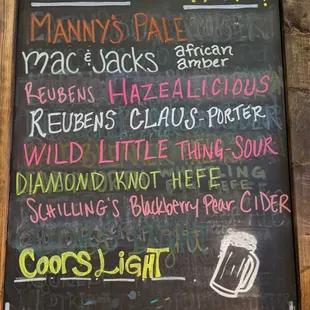 MANNY'S PALE
mac & Jacks african amber
REUBENS HAZEALICIOUS
REUBENS CLAUS-PORTER
WILD LITTLE THING-SOUR
DIAMOND KNOT HEFE
SCHILLING'S Blackberry Pear CIDER
COORS LIGHT